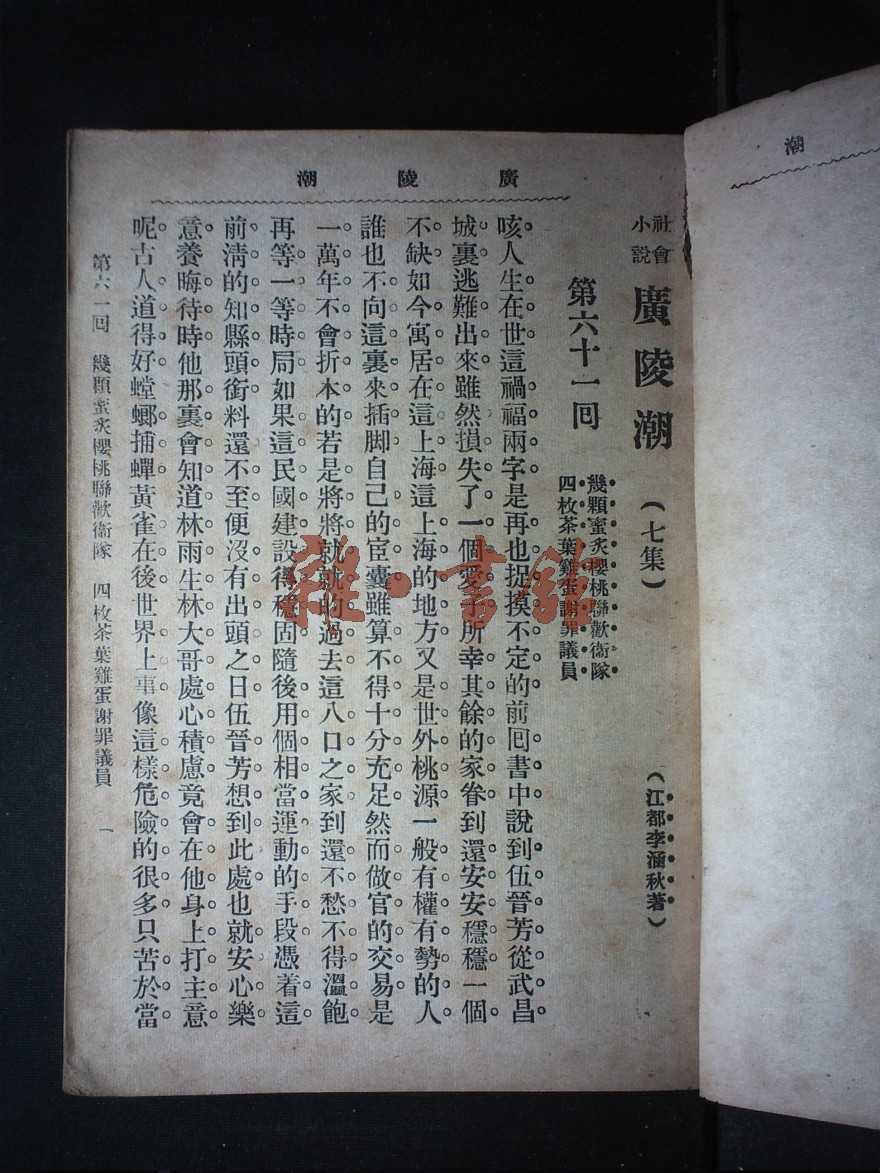 廣陵潮
社會小說 廣陵潮 (七集) (江都李涵秋著)
第六十一回
幾顆蜜炙櫻桃聯歡衞隊
四枚茶葉雞蛋謝罪議員
咳人生在世這禍福兩字是再也捉摸不定的前囘書中說到伍晉芳從武昌
城裏逃難出來雖然損失了一個愛子所幸其餘的家眷到還安安穩穩一個
不缺如今寓居在這上海這上海的地方又是世外桃源一般有權有勢的人
誰也不向這裏來插脚自己的宦囊雖算不得十分充足然而做官的交易是
一萬年不會折本的若是將將就就的過去這八口之家到還不愁不得溫飽
再等一等時局如果這民國建設得穩固隨後用個相當運動的手段憑着這
前清的知縣頭銜料還不至便沒有出頭之日伍晉芳想到此處也就安心樂
意養晦待時他那裏會知道林雨生林大哥處心積慮竟會在他身上打主意
呢古人道得好螳螂捕蟬黃雀在後世界上事像這樣危險的很多只苦於當
第六一囘 幾顆蜜炙櫻桃聯歡衞隊 四枚茶葉雞蛋謝罪議員 一
潮
雜·書館